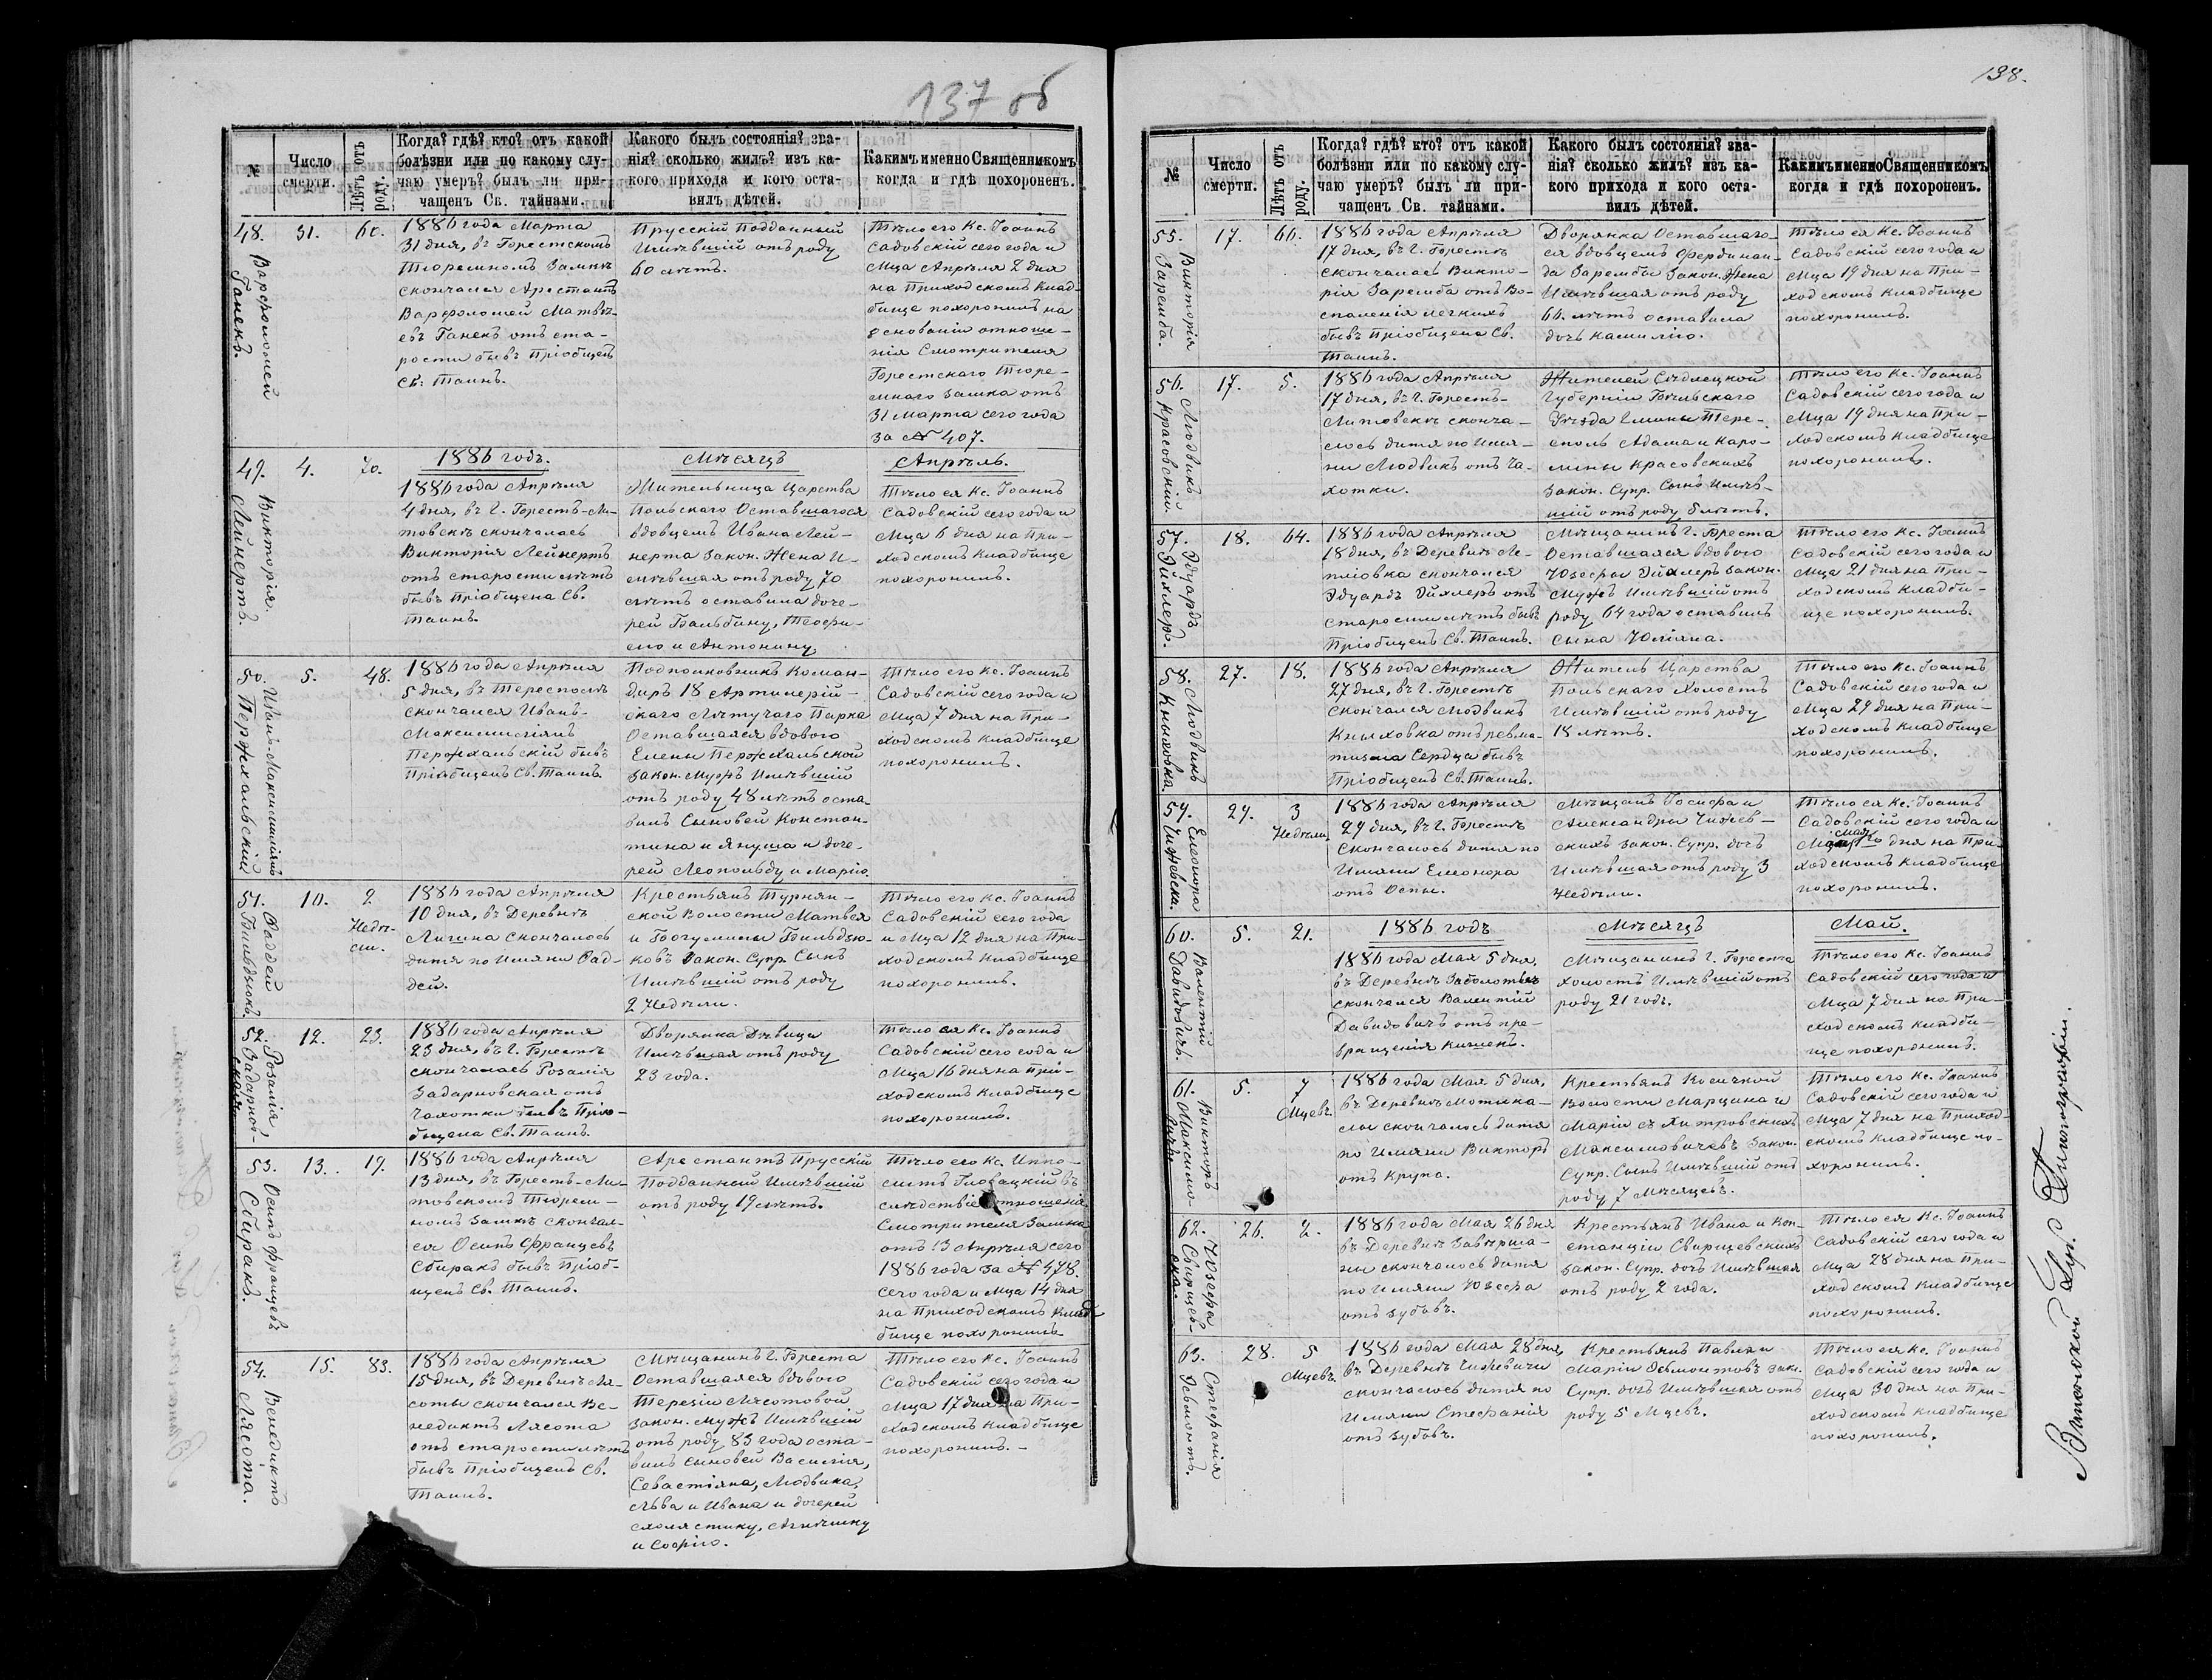 137 об
№
Число смерти.
Лѣтъ отъ роду.
Когда? гдѣ? кто? отъ какой
болѣзни или по какому слу-
чаю умеръ? былъ ли при-
чащенъ Св. тайнами.
Какого былъ состоянія? зва-
нія? сколько жилъ? изъ ка-
кого прихода и кого оста-
вилъ дѣтей.
Какимъ именно Священникомъ
когда и гдѣ похороненъ.
48.
Варфоломей
Ганекъ.
31.
60.
1886 года Марта
31 дня, въ Брестскомъ
Тюремномъ Замкѣ
скончался Арестантъ
Варфоломей Матвѣ-
евъ Ганекъ отъ ста-
рости бывъ Пріобщенъ
Св. Таинъ.
Прусскій Подданный
Имѣвшій отъ роду
60 лѣтъ.
Тѣло его Кс. Іоаннъ
Садовскій сего года и
Мца Апрѣля 2 дня
на Приходскомъ Клад-
бище похоронилъ на
основаніи отноше-
нія Смотрителя
Брестскаго Тюре-
мнаго Замка отъ
31 Марта сего года
за № 407.
1886 годъ.
Мѣсяцъ
Апрѣль.
49.
Викторія.
Лейнертъ.
4.
70.
1886 года Апрѣля
4 дня, въ г. Брестъ-Ли-
товскѣ скончалась
Викторія Лейнертъ
отъ старости лѣтъ
бывъ Пріобщена Св.
Таинъ.
Жительница Царства
Польскаго Оставшагося
вдовцемъ Ивана Лей-
нерта Закон. Жена И-
мѣвшая отъ роду 70
лѣтъ оставила доче-
рей Бальбину, Теофи-
лю и Антонину
Тѣло ея Кс. Іоаннъ
Садовскій сего года и
Мца 6 дня на При-
ходскомъ Кладбище
похоронилъ.
50.
Иванъ-Максимиліянъ
Пержхальскій
5.
48.
1886 года Апрѣля
5 дня, въ Тересполѣ
скончался Иванъ-
Максимиліянъ
Пержхальскій бывъ
Пріобщенъ Св. Таинъ.
Подполковникъ Коман-
диръ 18 Артилерій-
скаго Летучаго Парка
Оставшаяся вдового
Елены Пержхальской
Закон. Мужъ Имѣвшій
отъ роду 48 лѣтъ оста-
вилъ Сыновей Констан-
тина и Януша и доче-
рей Леопольду и Марію.
Тѣло его Кс. Іоаннъ
Садовскій сего года и
Мца 7 дня на При-
ходскомъ Кладбище
похоронилъ.
51.
Фаддей
Бильдзюкъ.
10.
2
Недѣ-
ли.
1886 года Апрѣля
10 дня, въ Деревнѣ
Лишна Скончалось
дитя по Имяни Фад-
дей.
Крестьянъ Турнян-
ской Волости Матвея
и Богумилы Бильдзю-
ковъ Закон. Супр. Сынъ
Имѣвшій отъ роду
2 Недѣли.
Тѣло его Кс. Іоаннъ
Садовскій сего года
и Мца 12 дня на При-
ходскомъ Кладбище
похоронилъ.
52.
Розалія
Задарнов-
ская.
12.
23.
1886 года Апрѣля
23 дня, въ г. Брестѣ
скончалась Розалія
Задарновская отъ
Чахотки бывъ Пріо-
бщена Св. Таинъ.
Дворянка Дѣвица
Имѣвшая отъ роду
23 года.
Тѣло ея Кс. Іоаннъ
Садовскій сего года и
Мца 16 дня на При-
ходскомъ Кладбище
похоронилъ.
53.
Осипъ Францевъ
Сбиракъ.
13.
19.
1886 года Апрѣля
13 дня, въ Брестъ-Ли-
товскомъ Тюрем-
номъ Замкѣ скончал-
ся Осипъ Францевъ
Сбиракъ бывъ Пріоб-
щенъ Св. Таинъ.
Арестантъ Прусскій
Подданный Имѣвшій
отъ роду 19 лѣтъ.
Тѣло его Кс. Иппо-
литъ Гловацкій въ
слѣдствіе отношенія
Смотрителя Замка
отъ 13 Апрѣля сего
1886 года за № 478.
сего года и Мца 14 дня
на Приходскомъ Клад-
бище похоронилъ
54.
Венедиктъ
Лясота.
15.
83.
1886 года Апрѣля
15 дня, въ Деревнѣ Ля-
соты скончался Ве-
недиктъ Лясота
отъ старости лѣтъ
бывъ Пріобщенъ Св.
Таинъ.
Мѣщанинъ г. Бреста
Оставшаяся вдового
Терезіи Лясотовой
Закон. мужъ Имѣвшій
отъ роду 83 года оста-
вилъ сыновей Василія,
Севастіяна, Людвика,
Льва и Ивана и дочерей
Схолястику, Агнѣшку
и Софію.
Тѣло его Кс. Іоаннъ
Садовскій сего года и
Мца 17 дня на При-
ходскомъ Кладбище
похоронилъ. -
138.
№
Число смерти.
Лѣтъ отъ роду.
Когда? гдѣ? кто? отъ какой
болѣзни или по какому слу-
чаю умеръ? былъ ли при-
чащенъ Св. тайнами.
Какого былъ состоянія? зва-
нія? сколько жилъ? изъ ка-
кого прихода и кого оста-
вилъ дѣтей.
Какимъ именно Священникомъ
когда и гдѣ похороненъ.
55.
Викторія
Заремба.
17.
66.
1886 года Апрѣля
17 дня, въ г. Брестѣ
скончалась Викто-
рія Заремба отъ Во-
спаленія легкихъ
бывъ Пріобщена Св.
Таинъ.
Дворянка Оставшаго-
ся вдовцемъ Фердинан-
да Зарембы Закон. Жена
Имѣвшая отъ роду
66 лѣтъ оставила
дочь Камилію.
Тѣло ея Кс. Іоаннъ
Садовскій сего года и
Мца 19 дня на При-
ходскомъ Кладбище
похоронилъ.
56.
Людвикъ
Красовскій.
17.
5.
1886 года Апрѣля
17 дня, въ г. Брестъ-
Литовскѣ сконча-
лось дитя по Имя-
ни Людвикъ отъ Ча-
хотки.
Жителей Сѣдлецкой
Губерніи Бѣльскаго
Уѣзда Гмины Тере-
споль Адама и Каро-
лины Красовскихъ
Закон. Супр. Сынъ Имѣв-
шій отъ роду 5 лѣтъ.
Тѣло его Кс. Іоаннъ
Садовскій сего года и
Мца 19 дня на При-
ходскомъ Кладбище
похоронилъ.
57.
Эдуардъ
Эйхлеръ.
18.
64.
1886 года Апрѣля
18 дня, въ Деревнѣ Ле-
пліовка скончался
Эдуардъ Эйхлеръ отъ
старости лѣтъ бывъ
Пріобщенъ Св. Таинъ.
Мѣщанинъ г. Бреста
Оставшаяся вдового
Юзефы Эйхлеръ Закон.
Мужъ Имѣвшій отъ
роду 64 года оставилъ
сына Юліяна.
Тѣло его Кс. Іоаннъ
Садовскій сего года и
Мца 21 дня на При-
ходскомъ Кладби-
ще похоронилъ.
58.
Людвикъ
Кныховка.
27.
18.
1886 года Апрѣля
27 дня, въ г. Брестѣ
Скончался Людвикъ
Кныховка отъ ревма-
тизма Сердца бывъ
Пріобщенъ Св. Таинъ.
Житель Царства
Польскаго Холостъ
Имѣвшій отъ роду
18 лѣтъ.
Тѣло его Кс. Іоаннъ
Садовскій сего года и
Мца 29 дня на При-
ходскомъ Кладбище
похоронилъ.
59.
Елеонора
Чижевска.
29.
3
Недѣли.
1886 года Апрѣля
29 дня, въ г. Брестѣ
Скончалось дитя по
Имяни Елеонора
отъ Оспы.
Мѣщанъ Іосифа и
Александры Чижев-
скихъ Закон. Супр. дочь
Имѣвшая отъ роду 3
Недѣли.
Тѣло ея Кс. Іоаннъ
Садовскій сего года и
Мая
дня на При-
ходскомъ Кладбище
похоронилъ.
1886 годъ
Мѣсяцъ
Май.
60.
Валентій
Давидовичъ.
5.
21.
1886 года Мая 5 дня,
въ Деревнѣ Заболотье
скончался Валентій
Давидовичъ отъ пре-
вращенія Кишекъ.
Мѣщанинъ г. Бреста
Холостъ Имѣвшій отъ
роду 21 годъ.
Тѣло его Кс. Іоаннъ
Садовскій сего года и
Мца 7 дня на При-
ходскомъ Кладби-
ще похоронилъ.
61.
Викторъ
Максимо-
вичъ.
5.
7
Мцевъ.
1886 года Мая 5 дня,
въ Деревнѣ Мотыка-
лы скончалось дитя
по Имяни Викторъ
отъ Крупа.
Крестьянъ Косичкой
Волости Марцина и
Маріи съ Хитровскихъ
Максимовичевъ Закон.
Супр. Сынъ Имѣвшій отъ
роду 7 Мѣсяцевъ.
Тѣло его Кс. Іоаннъ
Садовскій сего года и
Мца 7 дня на Приход-
скомъ Кладбище по-
хоронилъ.
62.
Юзефа
Свирщев-
ская
26.
2.
1886 года Мая 26 дня
въ Деревнѣ Завѣрша-
ны скончалось дитя
по Имяни Юзефа
отъ Зубовъ.
Крестьянъ Ивана и Кон-
станціи Свирщевскихъ
Закон. Супр. дочь Имѣвшая
отъ роду 2 года.
Тѣло ея Кс. Іоаннъ
Садовскій сего года и
Мца 28 дня на При-
ходскомъ Кладбище
похоронилъ.
63.
Стефанія
28.
5
Мцевъ.
1886 года Мая 28 дня,
въ Деревнѣ Чижевичи
скончалось дитя по
Имяни Стефанія
отъ Зубовъ.
Крестьянъ Павла и
Маріи
Зак.
Супр. дочь Имѣвшая отъ
роду 5 Мцевъ.
Тѣло ея Кс. Іоаннъ
Садовскій сего года и
Мца 30 дня на При-
ходскомъ Кладбище
похоронилъ.